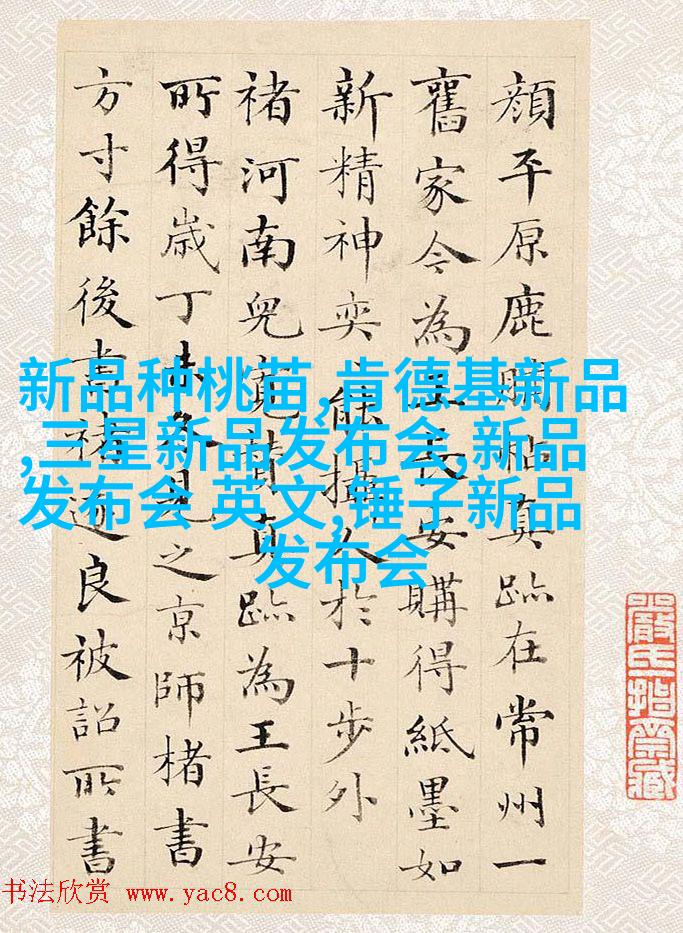 顔平原鹿脯帖真跡在常州一
舊家今為王長安購得紙墨如
新精神奕能攝人於十步外
褚河南兒寬贊真跡為王長安
所得歲丁未余見之京師楮書
方寸餘後書褚遂良被詔所書
新品种桃苗,肯德基新品
,三星新品发布会,新品
发布会 英文,锤子新品
发布会
书法欣赏 www.yac8.com